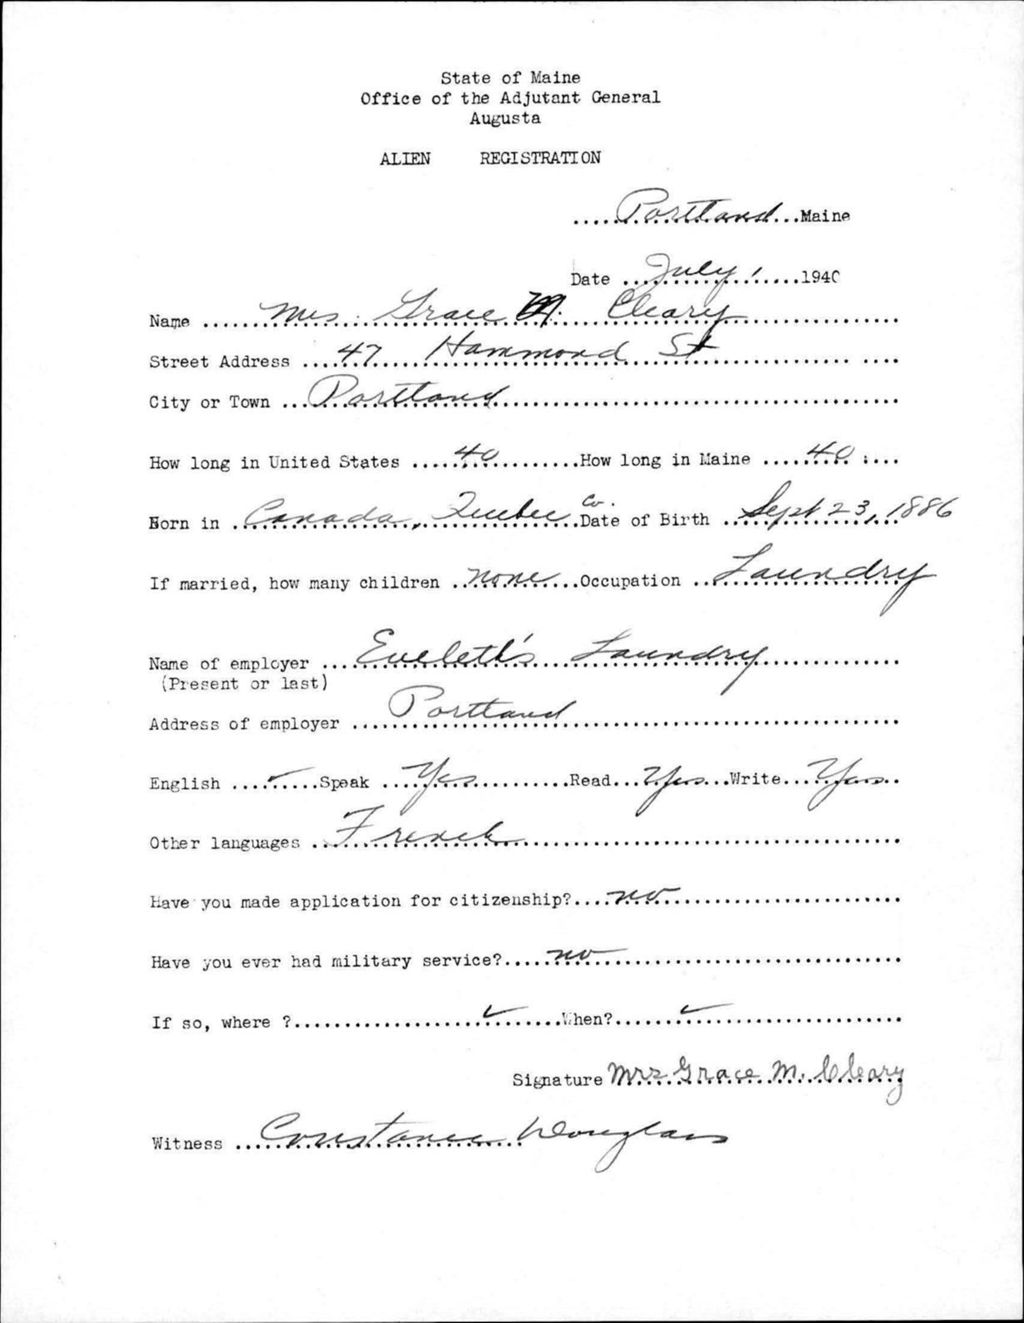 State of Maine
Office of the Adjutant General
Augusta
ALIEN REGISTRATION
.....Portland...Maine
Date ...July 1.....1940
Name .......Mrs. Grace M. Cleary..................
Street Address ...47.....Hammond St...................
City or Town ...Portland...................
How long in United States .....40..........How long in Maine .....40.....
Born in .Canada, Quebec Co. Date of Birth ..Sept 23, 1886
If married, how many children ..none...Occupation ..Laundry
Name of employer ....Eveleth's Laundry...............
(Present or last)
Address of employer ....Portland...................
English ....✓.....Speak ....Yes..........Read...Yes...Write...Yes..
Other languages ..French...................
Have you made application for citizenship?....no...................
Have you ever had military service?.....no...................
If so, where ?...................✓.......When?.......✓...................
Signature Mrs. Grace M. Cleary
Witness ...Constance Douglass